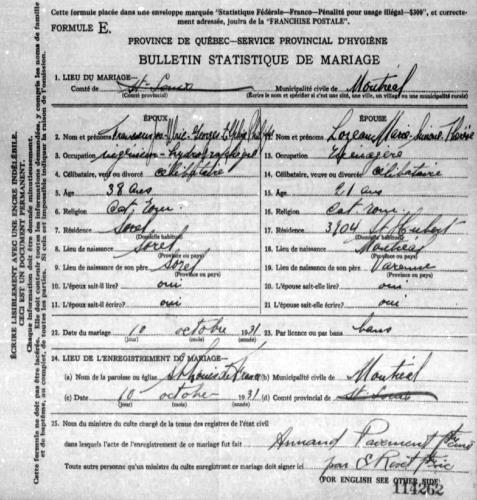 Cette formule placée dans une enveloppe marquée "Statistique Fédérale—Franco—Pénalité pour usage illégal—$300", et correcte-
ment adressée, jouira de la "FRANCHISE POSTALE".
FORMULE E.
PROVINCE DE QUÉBEC—SERVICE PROVINCIAL D'HYGIÈNE
BULLETIN STATISTIQUE DE MARIAGE
1. LIEU DU MARIAGE—
Comté de St Louis Municipalité civile de Montréal
(Comté provincial) (Écrire le nom et spécifier si c'est une cité, une ville, un village ou une municipalité rurale)
ÉPOUX ÉPOUSE
2. Nom et prénoms 13. Nom et prénoms Marie-Simone-
3. Occupation ingénieur-hydrographe 13. Occupation Ménagère
4. Célibataire, veuf ou divorcé célibataire 14. Célibataire, veuve ou divorcée célibataire
5. Âge 38 ans 15. Âge 21 ans
6. Religion Cat. rom. 16. Religion Cat. rom.
7. Résidence Sorel 17. Résidence 3904 St Hubert
(Domicile habituel) (Domicile habituel)
8. Lieu de naissance Sorel 18. Lieu de naissance Montréal
(Province ou pays) (Province ou pays)
9. Lieu de naissance de son père Sorel 19. Lieu de naissance de son père Varenne
(Province ou pays) (Province ou pays)
10. L'époux sait-il lire? oui 20. L'épouse sait-elle lire? oui
11. L'époux sait-il écrire? oui 21. L'épouse sait-elle écrire? oui
22. Date du mariage 10 octobre 1931 23. Par licence ou par bans bans
(jour) (mois) (année)
24. LIEU DE L'ENREGISTREMENT DU MARIAGE—
(a) Nom de la paroisse ou église St Louis de France (b) Municipalité civile de Montréal
(c) Date 10 octobre 1931 (d) Comté provincial St Louis
(jour) (mois) (année)
25. Nom du ministre du culte chargé de la tenue des registres de l'état civil
dans lesquels l'acte de l'enregistrement de ce mariage fut fait Armand
Toute autre personne qu'un ministre du culte enregistrant ce mariage doit signer ici par
(FOR ENGLISH SEE OTHER SIDE)
114262
ÉCRIRE LISIBLEMENT AVEC UNE ENCRE INDÉLÉBILE.
CECI EST UN DOCUMENT PERMANENT.